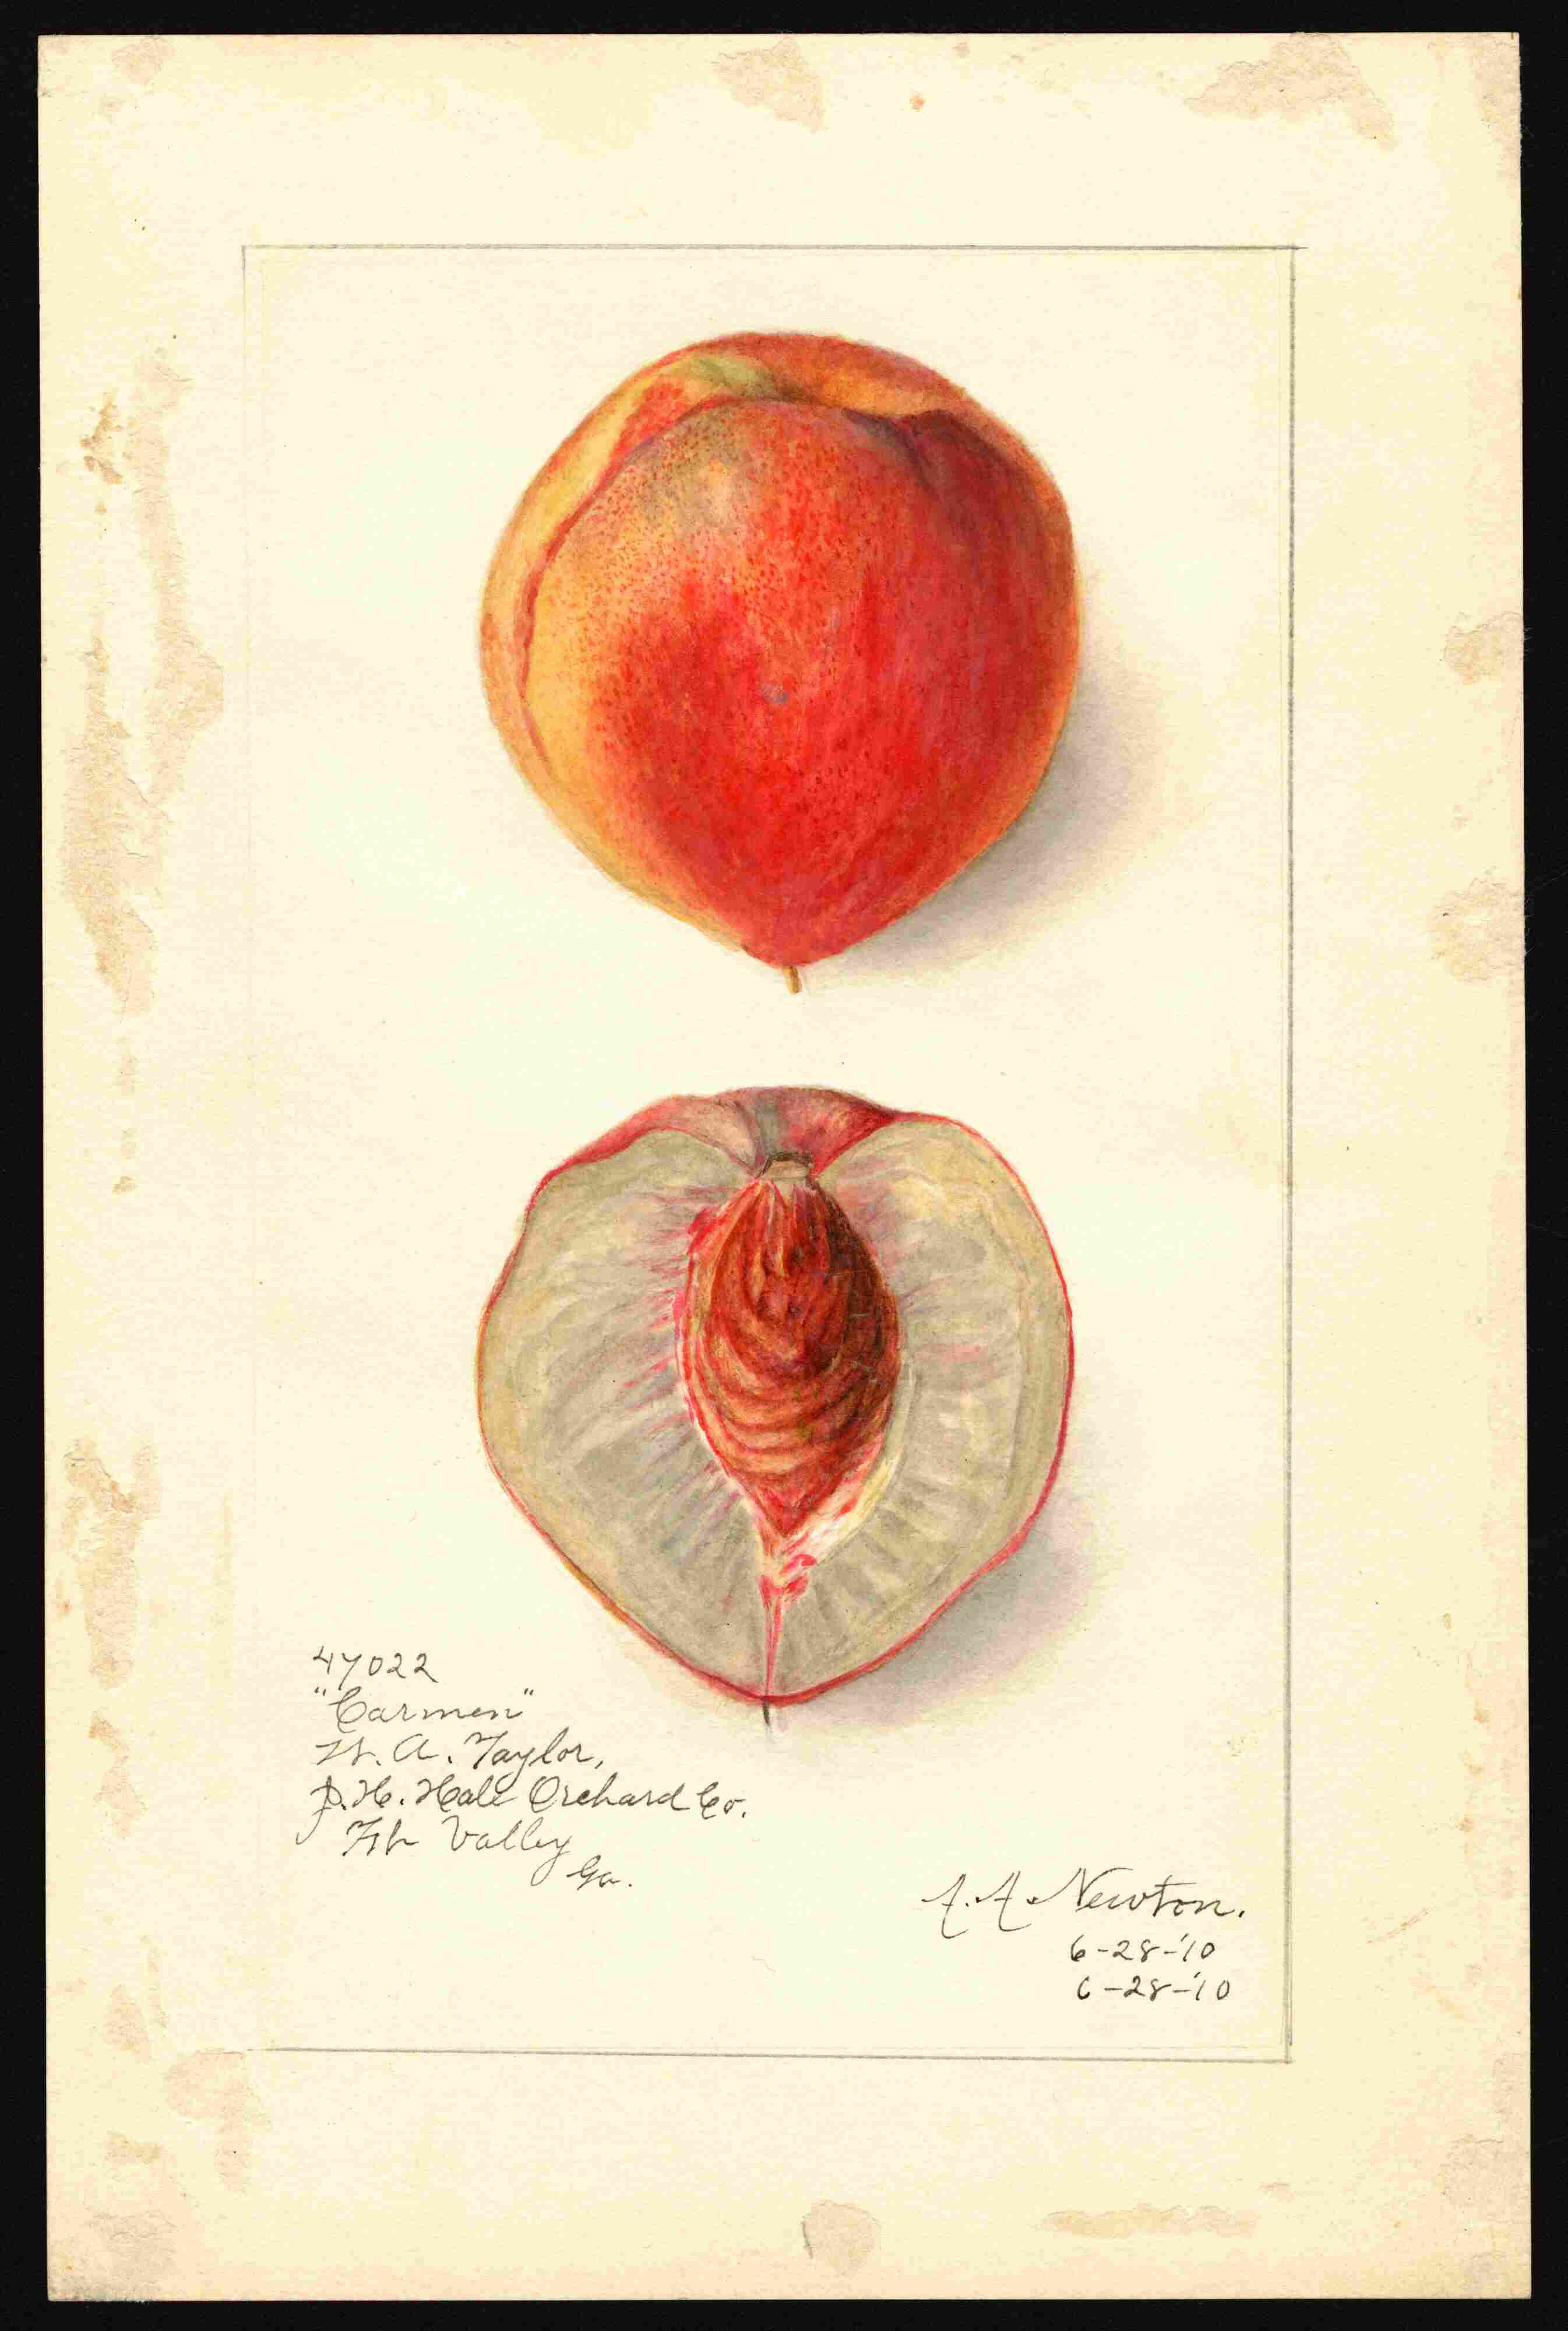 47022
"Carmen"
W. A. Taylor,
J. H. Hale Orchard Co.
Ft. Valley
Ga.
A. A. Newton.
6-28-'10
6-28-'10